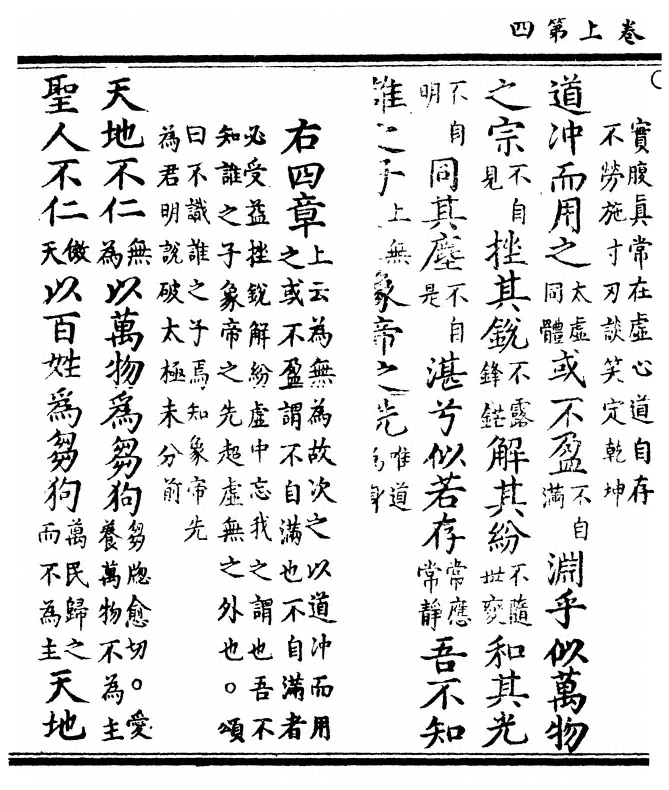 卷上第四
實腹眞常在虛心道自存
不勞施寸刃談笑定乾坤
道冲而用之太虛同體或不盈不自滿淵乎似萬物
之宗不自見挫其銳不露鋒鋩解其紛不隨世變和其光
不自明同其塵不自是湛兮似若存常應常靜吾不知
誰之子上無象帝之先唯道爲身
右四章上云為無為故次之以道冲而用
之或不盈謂不自滿也不自滿者
必受益挫銳解紛虛中忘我之謂也吾不
知誰之子象帝之先超虛無之外也。頌
曰不識誰之子焉知象帝先
為君明說破太極未分前
天地不仁無為以萬物爲芻狗芻牕愈切。愛養萬物不為主
聖人不仁倣天以百姓爲芻狗萬民歸之而不為主天地